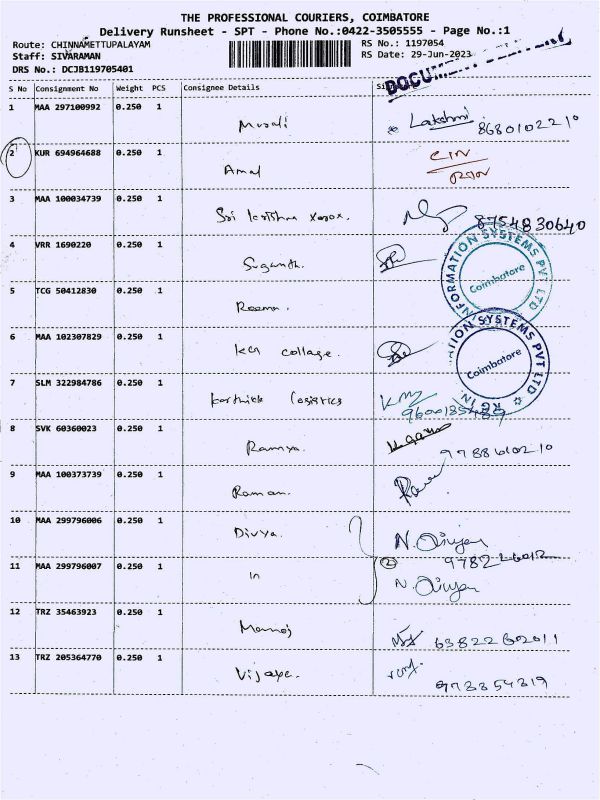 THE PROFESSIONAL COURIERS, COIMBATORE
Delivery Runsheet - SPT - Phone No.:0422-3505555 - Page No.:1
Route: CHINNAMETTUPALAYAM RS No.: 1197054
Staff: SIVARAMAN RS Date: 29-Jun-2023
DRS No.: DCJB119705401
S No Consignment No Weight PCS Consignee Details
1 MAA 297100992 0.250 1 Murali Lakshmi 8680102210
2 KUR 694964688 0.250 1 Amal
3 MAA 100034739 0.250 1 Sri krishna xerox. 8754830640
4 VRR 1690220 0.250 1 Suganth.
5 TCG 50412830 0.250 1
INFORMATION SYSTEMS PVT LTD
Coimbatore
6 MAA 102307829 0.250 1 collage.
SYSTEMS PVT LTD
Coimbatore
7 SLM 322984786 0.250 1 karthick Logistics
8 SVK 60360023 0.250 1 Ramya.
9 MAA 100373739 0.250 1 Raman.
10 MAA 299796006 0.250 1 Divya. N. Divya
11 MAA 299796007 0.250 1 2 N. Divya
12 TRZ 35463923 0.250 1 Manoj
13 TRZ 205364770 0.250 1